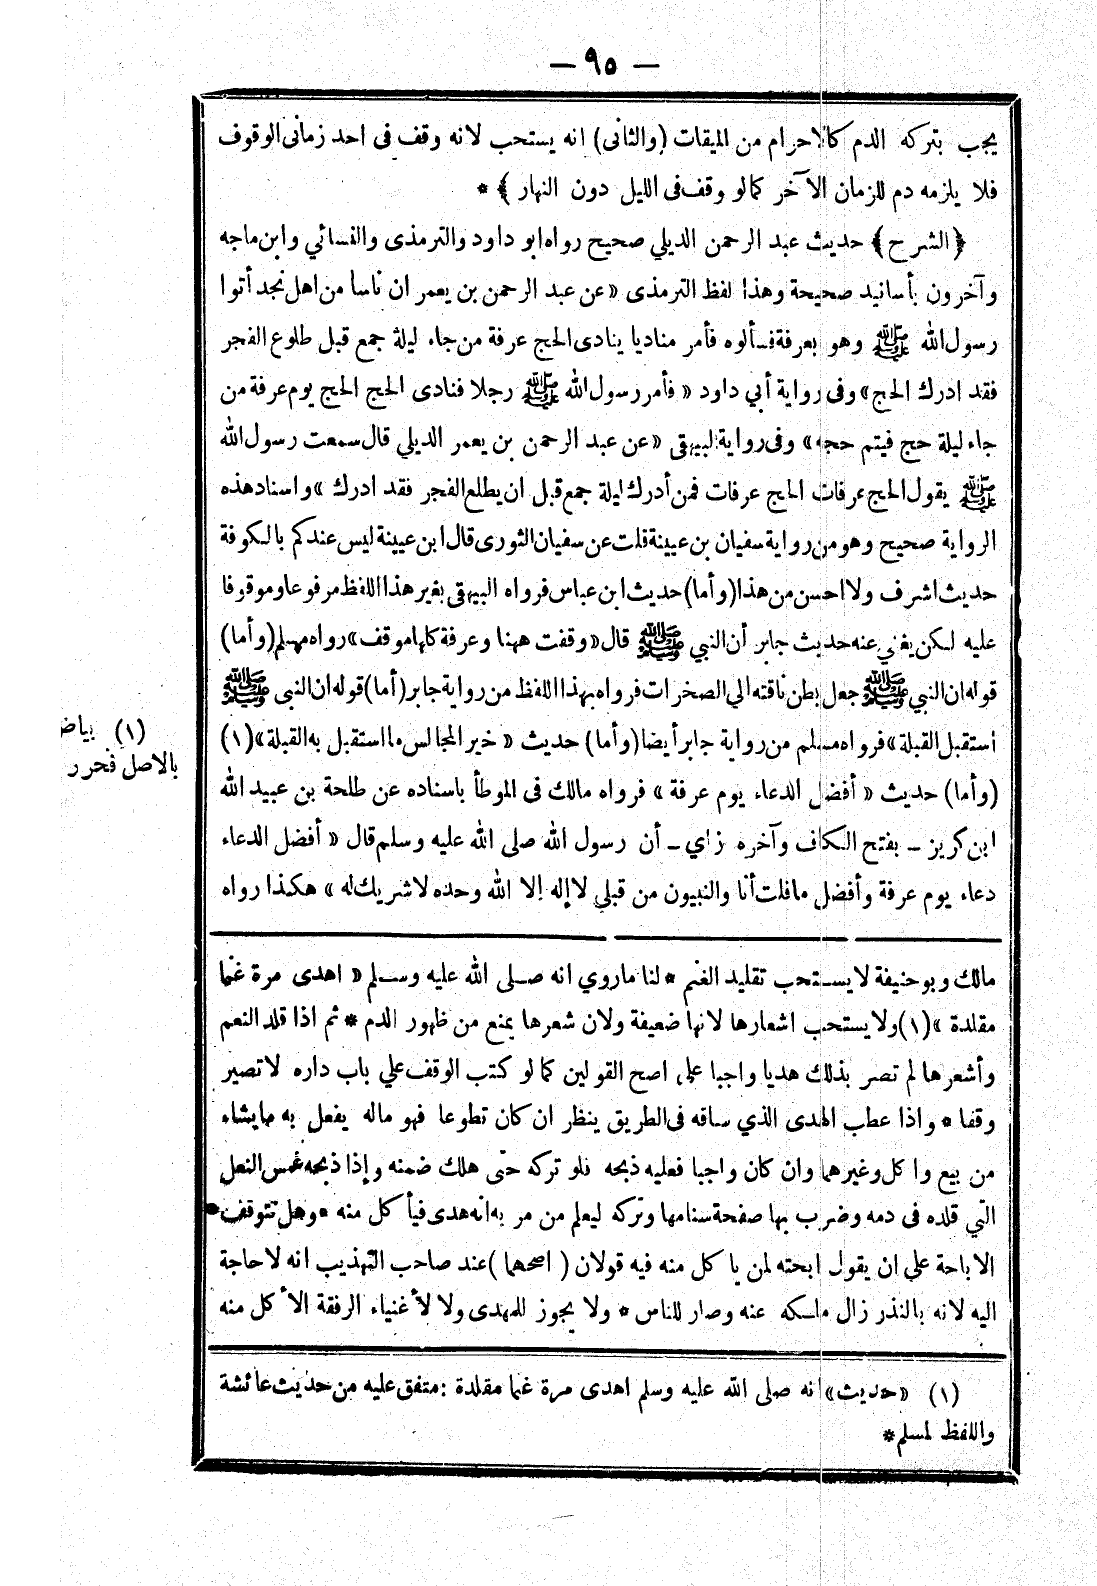 — ٩٥ —
يجب بتركه الدم كالاحرام من الميقات (والثانى) انه يستحب لانه وقف فى احد زمانى الوقوف
فلا يلزمه دم للزمان الآخر كما لو وقف فى الليل دون النهار ﴾ *
﴿ الشرح ﴾ حديث عبد الرحمن الديلي صحيح رواه ابو داود والترمذى والنسائي وابن ماجه
وآخرون بأسانيد صحيحة وهذا لفظ الترمذى « عن عبد الرحمن بن يعمر ان ناسا من اهل نجد أتوا
رسول الله ﷺ وهو بعرفة فسألوه فأمر مناديا ينادى الحج عرفة من جاء ليلة جمع قبل طلوع الفجر
فقد ادرك الحج » وفى رواية أبي داود « فأمر رسول الله ﷺ رجلا فنادى الحج الحج يوم عرفة من
جاء ليلة حج فيتم حجه » وفى رواية البيهقى « عن عبد الرحمن بن يعمر الديلي قال سمعت رسول الله
ﷺ يقول الحج عرفات الحج عرفات فمن أدرك ليلة جمع قبل ان يطلع الفجر فقد ادرك » واسناد هذه
الرواية صحيح وهو من رواية سفيان بن عيينة قلت عن سفيان الثورى قال ابن عيينة ليس عندكم بالكوفة
حديث اشرف ولا احسن من هذا (وأما) حديث ابن عباس فرواه البيهقى بغير هذا اللفظ مرفوعا وموقوفا
عليه لكن يغني عنه حديث جابر أن النبي ﷺ قال « وقفت ههنا وعرفة كلها موقف » رواه مسلم (وأما)
قوله ان النبي ﷺ جعل بطن ناقته الي الصخرات فرواه بهذا اللفظ من رواية جابر (أما) قوله ان النبى ﷺ
استقبل القبلة » فرواه مسلم من رواية جابر أيضا (وأما) حديث « خير المجالس ما استقبل به القبلة » (١)
(١) بياض
بالاصل فحرر
(وأما) حديث « أفضل الدعاء يوم عرفة » فرواه مالك فى الموطأ باسناده عن طلحة بن عبيد الله
ابن كريز – بفتح الكاف وآخره زاي – أن رسول الله صلى الله عليه وسلم قال « أفضل الدعاء
دعاء يوم عرفة وأفضل ما قلت أنا والنبيون من قبلي لا إله الا الله وحده لا شريك له » هكذا رواه
مالك وبوحنيفة لا يستحب تقليد الغنم * لنا ماروي انه صلى الله عليه وسلم « اهدى مرة غنما
مقلدة » (١) ولا يستحب اشعارها لانها ضعيفة ولان شعرها يمنع من ظهور الدم * ثم اذا قلد النعم
وأشعرها لم تصر بذلك هديا واجبا على اصح القولين كما لو كتب الوقف علي باب داره لا تصير
وقفا * واذا عطب الهدى الذي ساقه فى الطريق ينظر ان كان تطوعا فهو ماله يفعل به مايشاء
من بيع واكل وغيرهما وان كان واجبا فعليه ذبحه فلو تركه حتى هلك ضمنه وإذا ذبحه غمس النعل
التي قلده فى دمه وضرب بها صفحة سنامها وتركه ليعلم من مر به انه هدى فيأكل منه * وهل تتوقف
الاباحة علي ان يقول ابحته لمن ياكل منه فيه قولان ( اصحهما ) عند صاحب التهذيب انه لا حاجة
اليه لانه بالنذر زال ملكه عنه وصار للناس * ولا يجوز للمهدى ولا لأغنياء الرفقة الأكل منه
(١) « حديث » انه صلى الله عليه وسلم اهدى مرة غنما مقلدة : متفق عليه من حديث عائشة
واللفظ لمسلم *